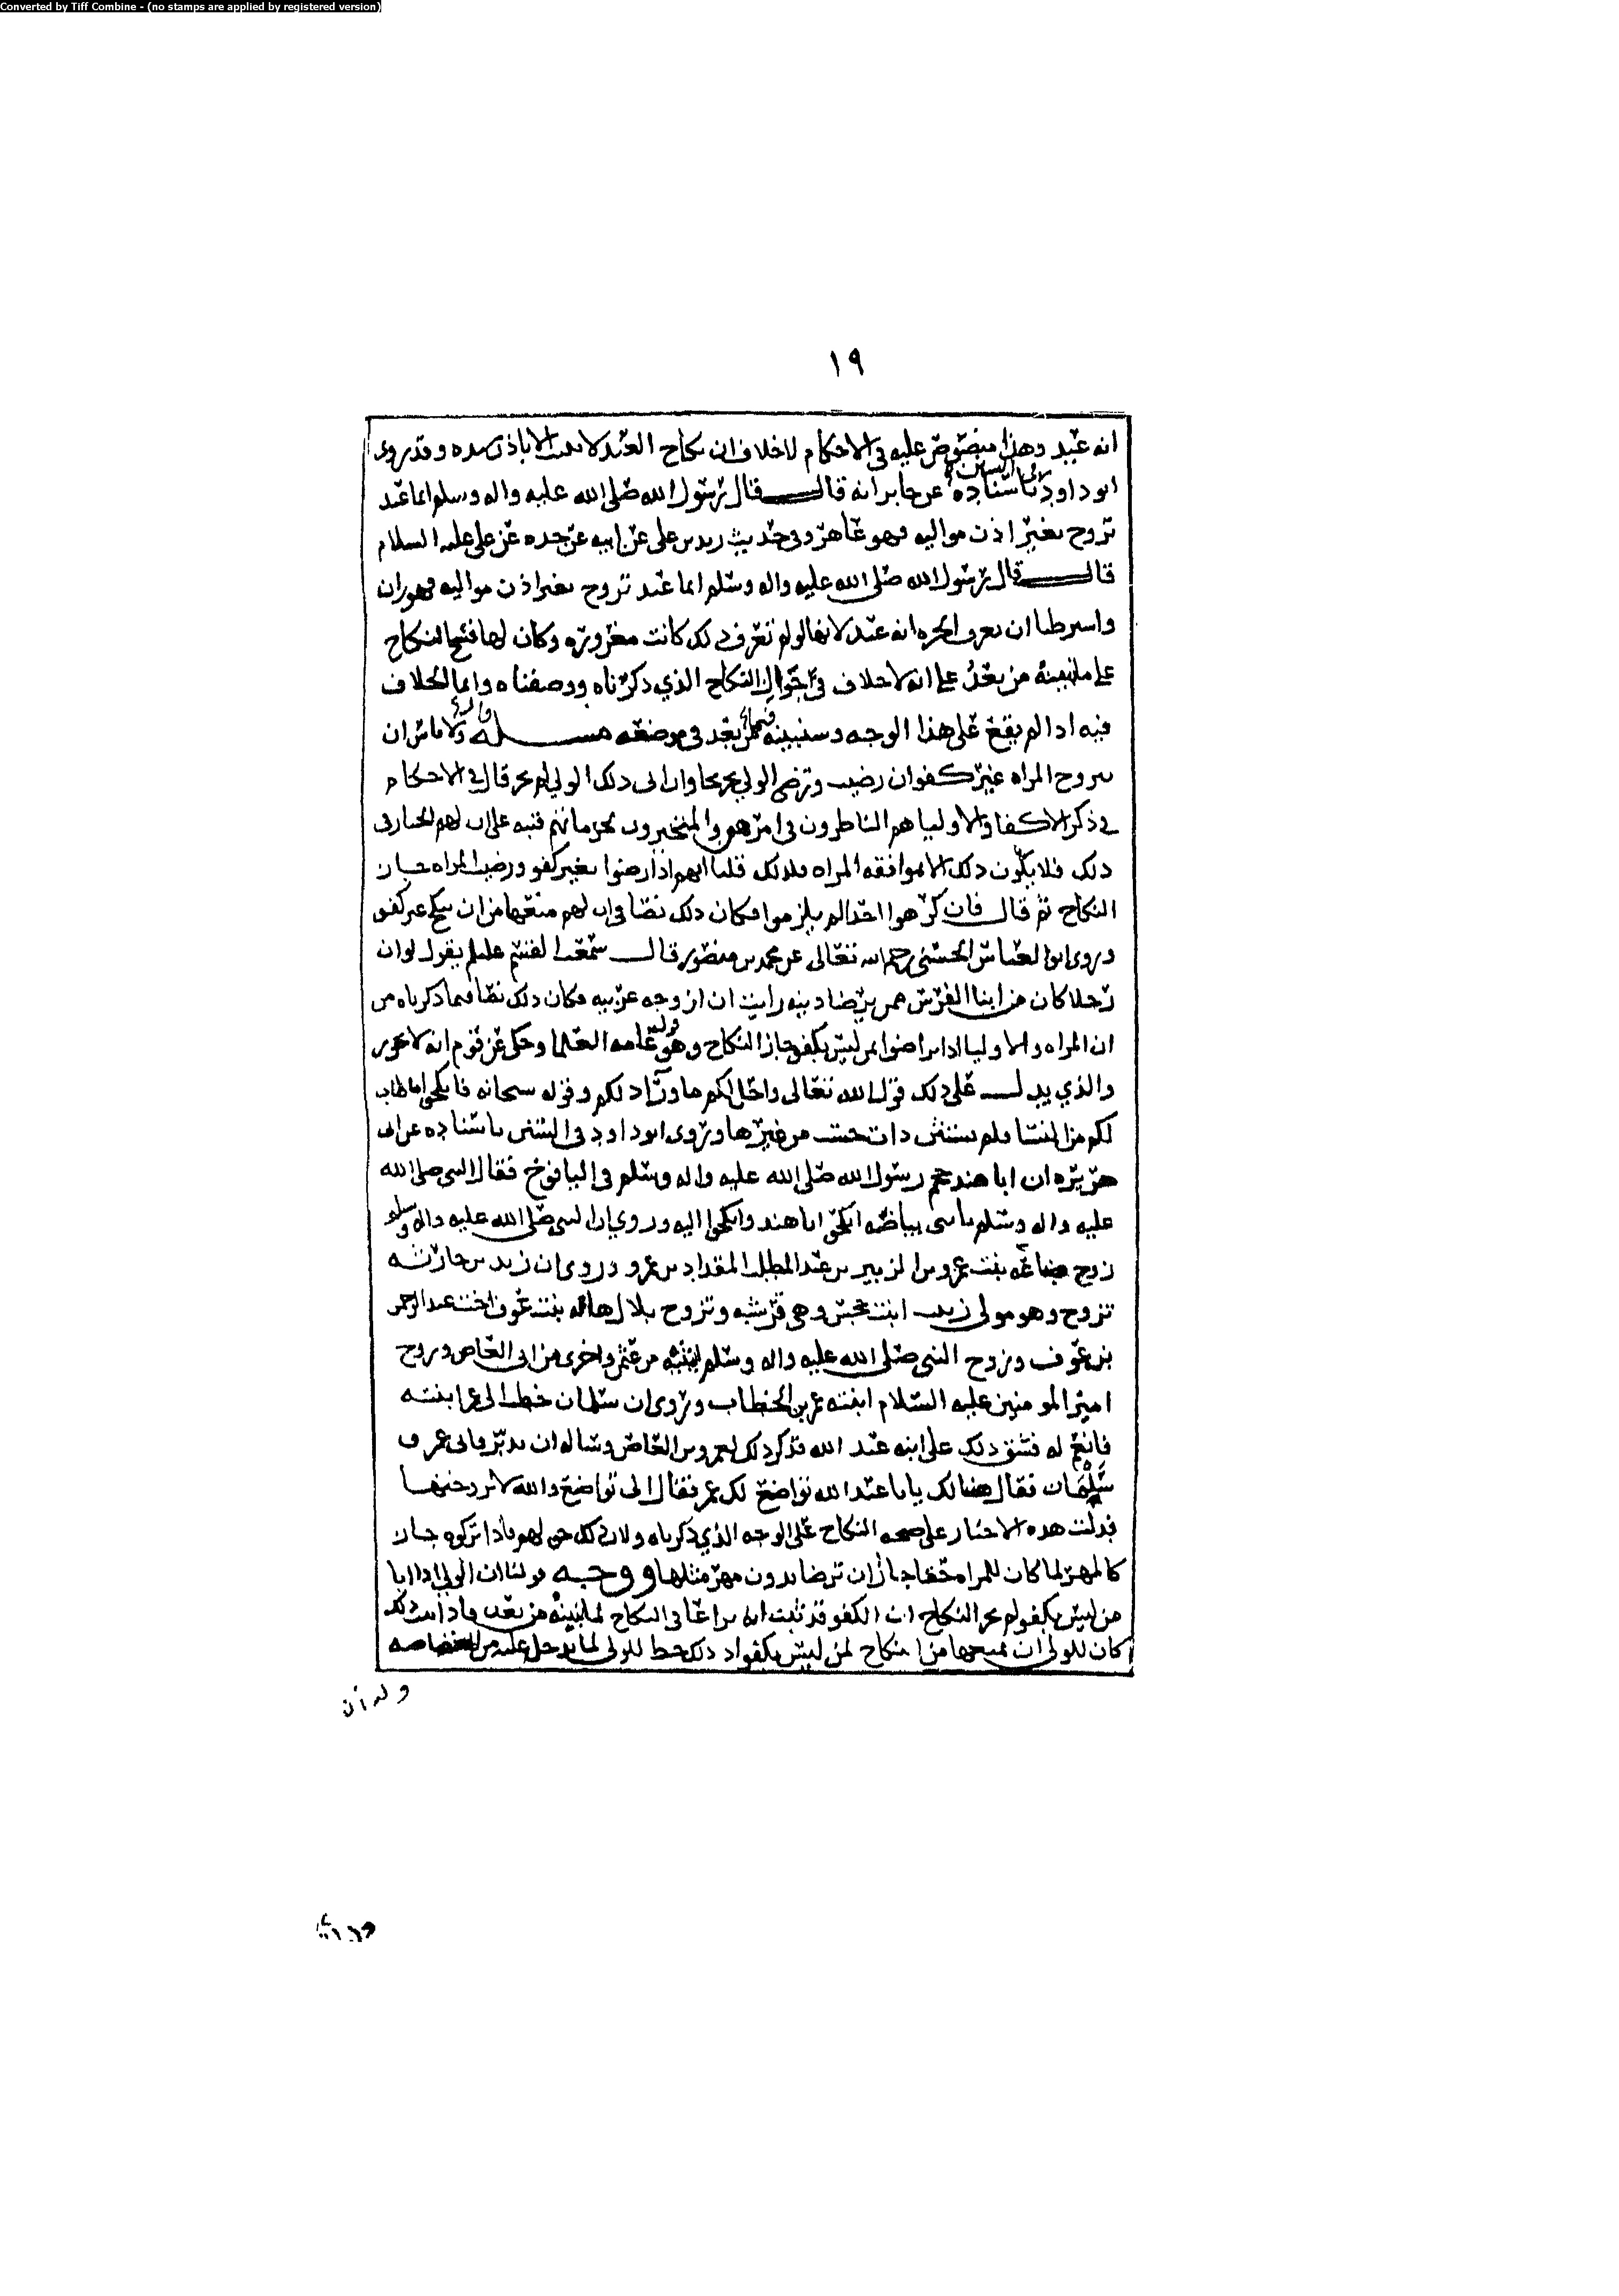 Converted by Tiff Combine - (no stamps are applied by registered version)
١٩
انه عبد وهذا منصوص عليه في الاحكام لا خلاف ان نكاح العبد لا يثبت الا باذن سيده وقد روى
ابو داود في السنن باسناده عن جابر انه قال قال رسول الله صلى الله عليه واله وسلم ايما عبد
تزوج بغير اذن مواليه فهو عاهر وفي حديث زيد بن علي عن ابيه عن جده عن علي عليه السلام
قال قال رسول الله صلى الله عليه واله وسلم ايما عبد تزوج بغير اذن مواليه فهو زان
واشرطنا ان تعرف الحره انه عبد لانها لو لم تعرف ذلك كانت مغروره وكان لها فسخ النكاح
على ما نبينه من بعد على انه لا خلاف في احوال النكاح الذي ذكرناه ووصفناه وانما الخلاف
فيه اذا لم يقع على هذا الوجه وسنبينه فيما بعد في موضعه مسله قال ولا باس ان
تتزوج المراه غير كفو ان رضيت وترضى الولي بحجها وان ابى ذلك الولي لم يجز قال في الاحكام
في ذكر الاكفا والاوليا هم الناظرون في امرهم والمتخيرون لحرماتهم فنبه على ان لهم الخيار في
ذلك فلا يكون ذلك الا موافقه المراه فلذلك قلنا انهم اذا رضوا بغير كفو ورضيت المراه جاز
النكاح ثم قال فان كرهوا احدا لم يلزموا فكان ذلك نصا في ان لهم منعها من ان تنكح غير كفو
وروى ابو العباس الحسني رحمه الله تعالى عن محمد بن منصور قال سمعت القسم عليلم يقول لو ان
رجلا كان من ابنا الفرس ممن يرضا دينه رايت ان ازوجه عربيه فكان ذلك نصا فيما ذكرناه من
ان المراه والاوليا اذا تراضوا بمن ليس بكفو جاز النكاح وهو قول عامه العلما وحكي عن قوم انه لا يجوز
والذي يدل على ذلك قول الله تعالى واحل لكم ما ورآ ذلكم وقوله سبحانه فانكحوا ما طاب
لكم من النسا ولم يستثن ذات حسب من غيرها وروى ابو داود في السنن باسناده عن ابي
هريره ان ابا هند حجم رسول الله صلى الله عليه واله وسلم في اليافوخ فقال النبي صلى الله
عليه واله وسلم يا بني بياضه انكحوا ابا هند وانكحوا اليه وروي ان النبي صلى الله عليه واله وسلم
زوج ضباعه بنت عمرو بن الزبير بن عبد المطلب المقداد بن عمرو وروي ان زيد بن حارثه
تزوج وهو مولى زينب ابنت جحش وهي قرشيه وتزوج بلال هاله بنت عوف اخت عبد الرحمن
بن عوف وزوج النبي صلى الله عليه واله وسلم ابنتيه من عثمن واخرى من ابي العاص وزوج
امير المومنين عليه السلام ابنته عمر بن الخطاب وروي ان سلمان خطب الى عمر ابنته
فانعم له فشق ذلك على ابنه عبد الله فذكر ذلك لعمرو بن العاص وساله ان يدبر فاتى عمرو
سلمان فقال هنيا لك يا ابا عبد الله تواضع لك عمر فقال الي تواضع والله لا تزوجتها
فدلت هذه الاخبار على صحه النكاح على الوجه الذي ذكرناه ولان ذلك حق لهم فاذا تركوه جاز
كالمهر لما كان للمراه حقا جاز ان ترضا بدون مهر مثلها ووجه قولنا ان الولي اذا ابا
من ليس بكفو لم يجز النكاح ان الكفو قد ثبت انه يراعا في النكاح لما نبينه من بعد فاذا ثبت ذلك
كان للولي ان يمنعها من النكاح لمن ليس بكفو اذ ذلك حط للولي لما يدخل عليه من الغضاضه
وله ان